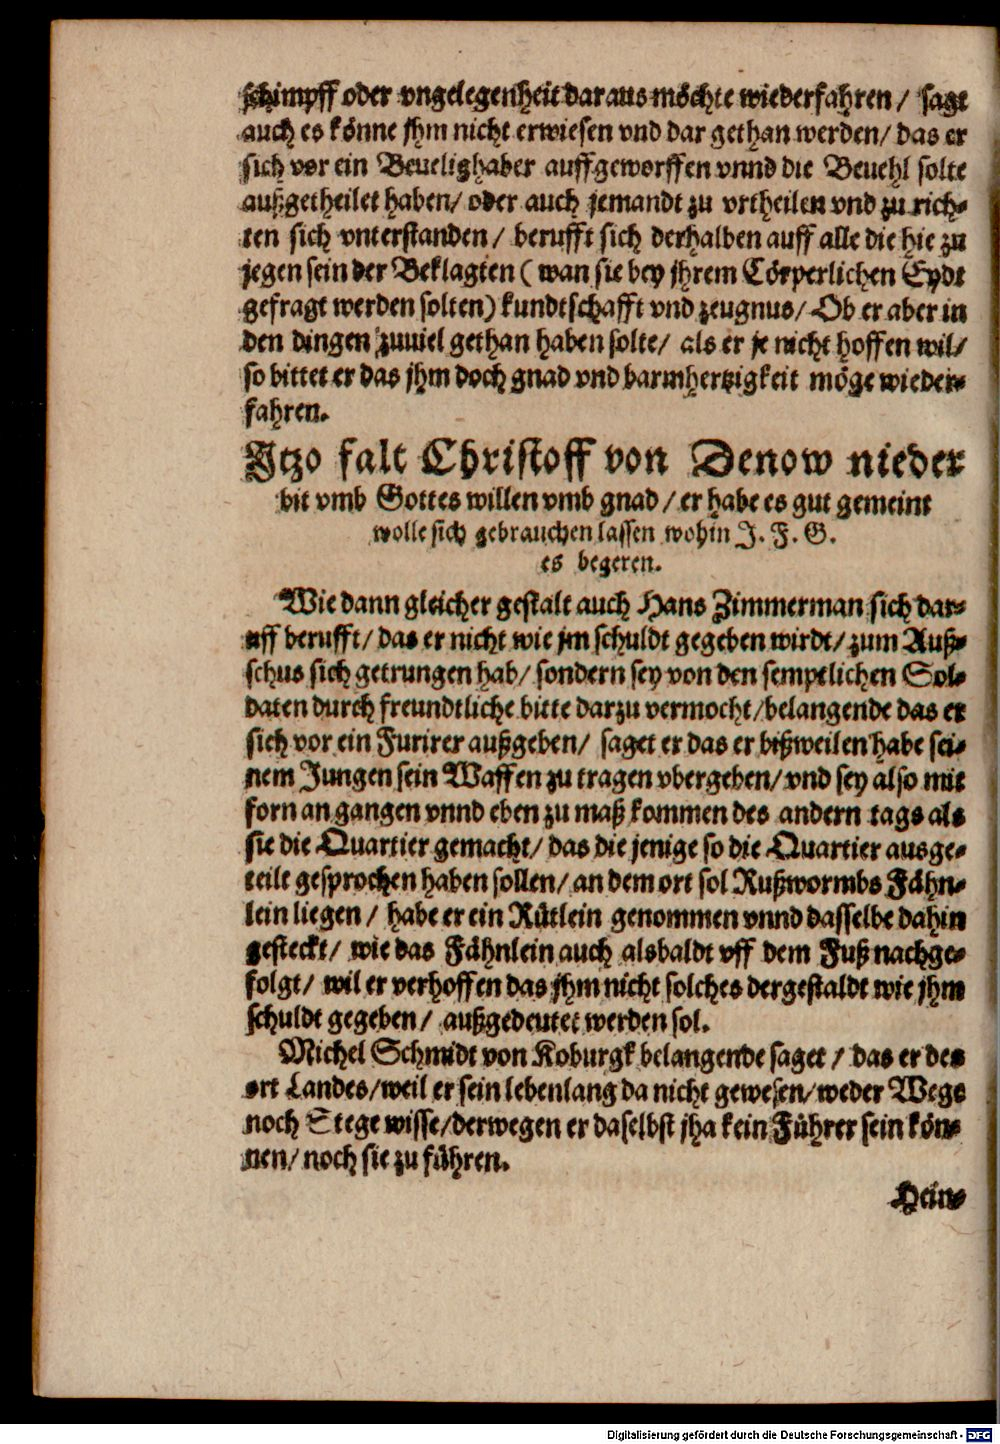 schimpff oder vngelegenheit daraus möchte wiederfahren / sagt
auch es könne jhm nicht erwiesen vnd dar gethan werden / das er
sich vor ein Beuelighaber auffgeworffen vnnd die Beuehl solte
außgetheilet haben / oder auch jemandt zu vrtheilen vnd zu rich-
ten sich vnterstanden / berufft sich derhalben auff alle die hie zu
jegen sein der Beklagten ( wan sie bey jhrem Cörperlichen Eydt
gefragt werden solten) kundtschafft vnd zeugnus / Ob er aber in
den dingen zuuiel gethan haben solte / als er je nicht hoffen wil /
so bittet er das jhm doch gnad vnd barmhertzigkeit möge wieder-
fahren.
Itzo falt Christoff von Denow nieder
bit vmb Gottes willen vmb gnad / er habe es gut gemeint
wolle sich gebrauchen lassen wohin J. F. G.
es begeren.
Wie dann gleicher gestalt auch Hans Zimmerman sich dar-
uff berufft / das er nicht wie jm schuldt gegeben wirdt / zum Auß-
schus sich getrungen hab / sondern sey von den semptlichen Sol-
daten durch freundtliche bitte darzu vermocht / belangende das er
sich vor ein Furirer außgeben / saget er das er bißweilen habe sei-
nem Jungen sein Waffen zu tragen vbergeben / vnd sey also mit
forn an gangen vnnd eben zu maß kommen des andern tags als
sie die Quartier gemacht / das die jenige so die Quartier ausge-
teilt gesprochen haben sollen / an dem ort sol Rußwormbs Fähn-
lein liegen / habe er ein Rütlein genommen vnnd dasselbe dahin
gesteckt / wie das Fähnlein auch alsbaldt vff dem Fuß nachge-
folgt / wil er verhoffen das jhm nicht solches dergestaldt wie jhm
schuldt gegeben / außgedeutet werden sol.
Michel Schmidt von Koburgk belangende saget / das er des
ort Landes / weil er sein lebenlang da nicht gewesen / weder Wege
noch Stege wisse / derwegen er daselbst jha kein Führer sein kön-
nen / noch sie zu führen.
Hein-
Digitalisierung gefördert durch die Deutsche Forschungsgemeinschaft - DFG